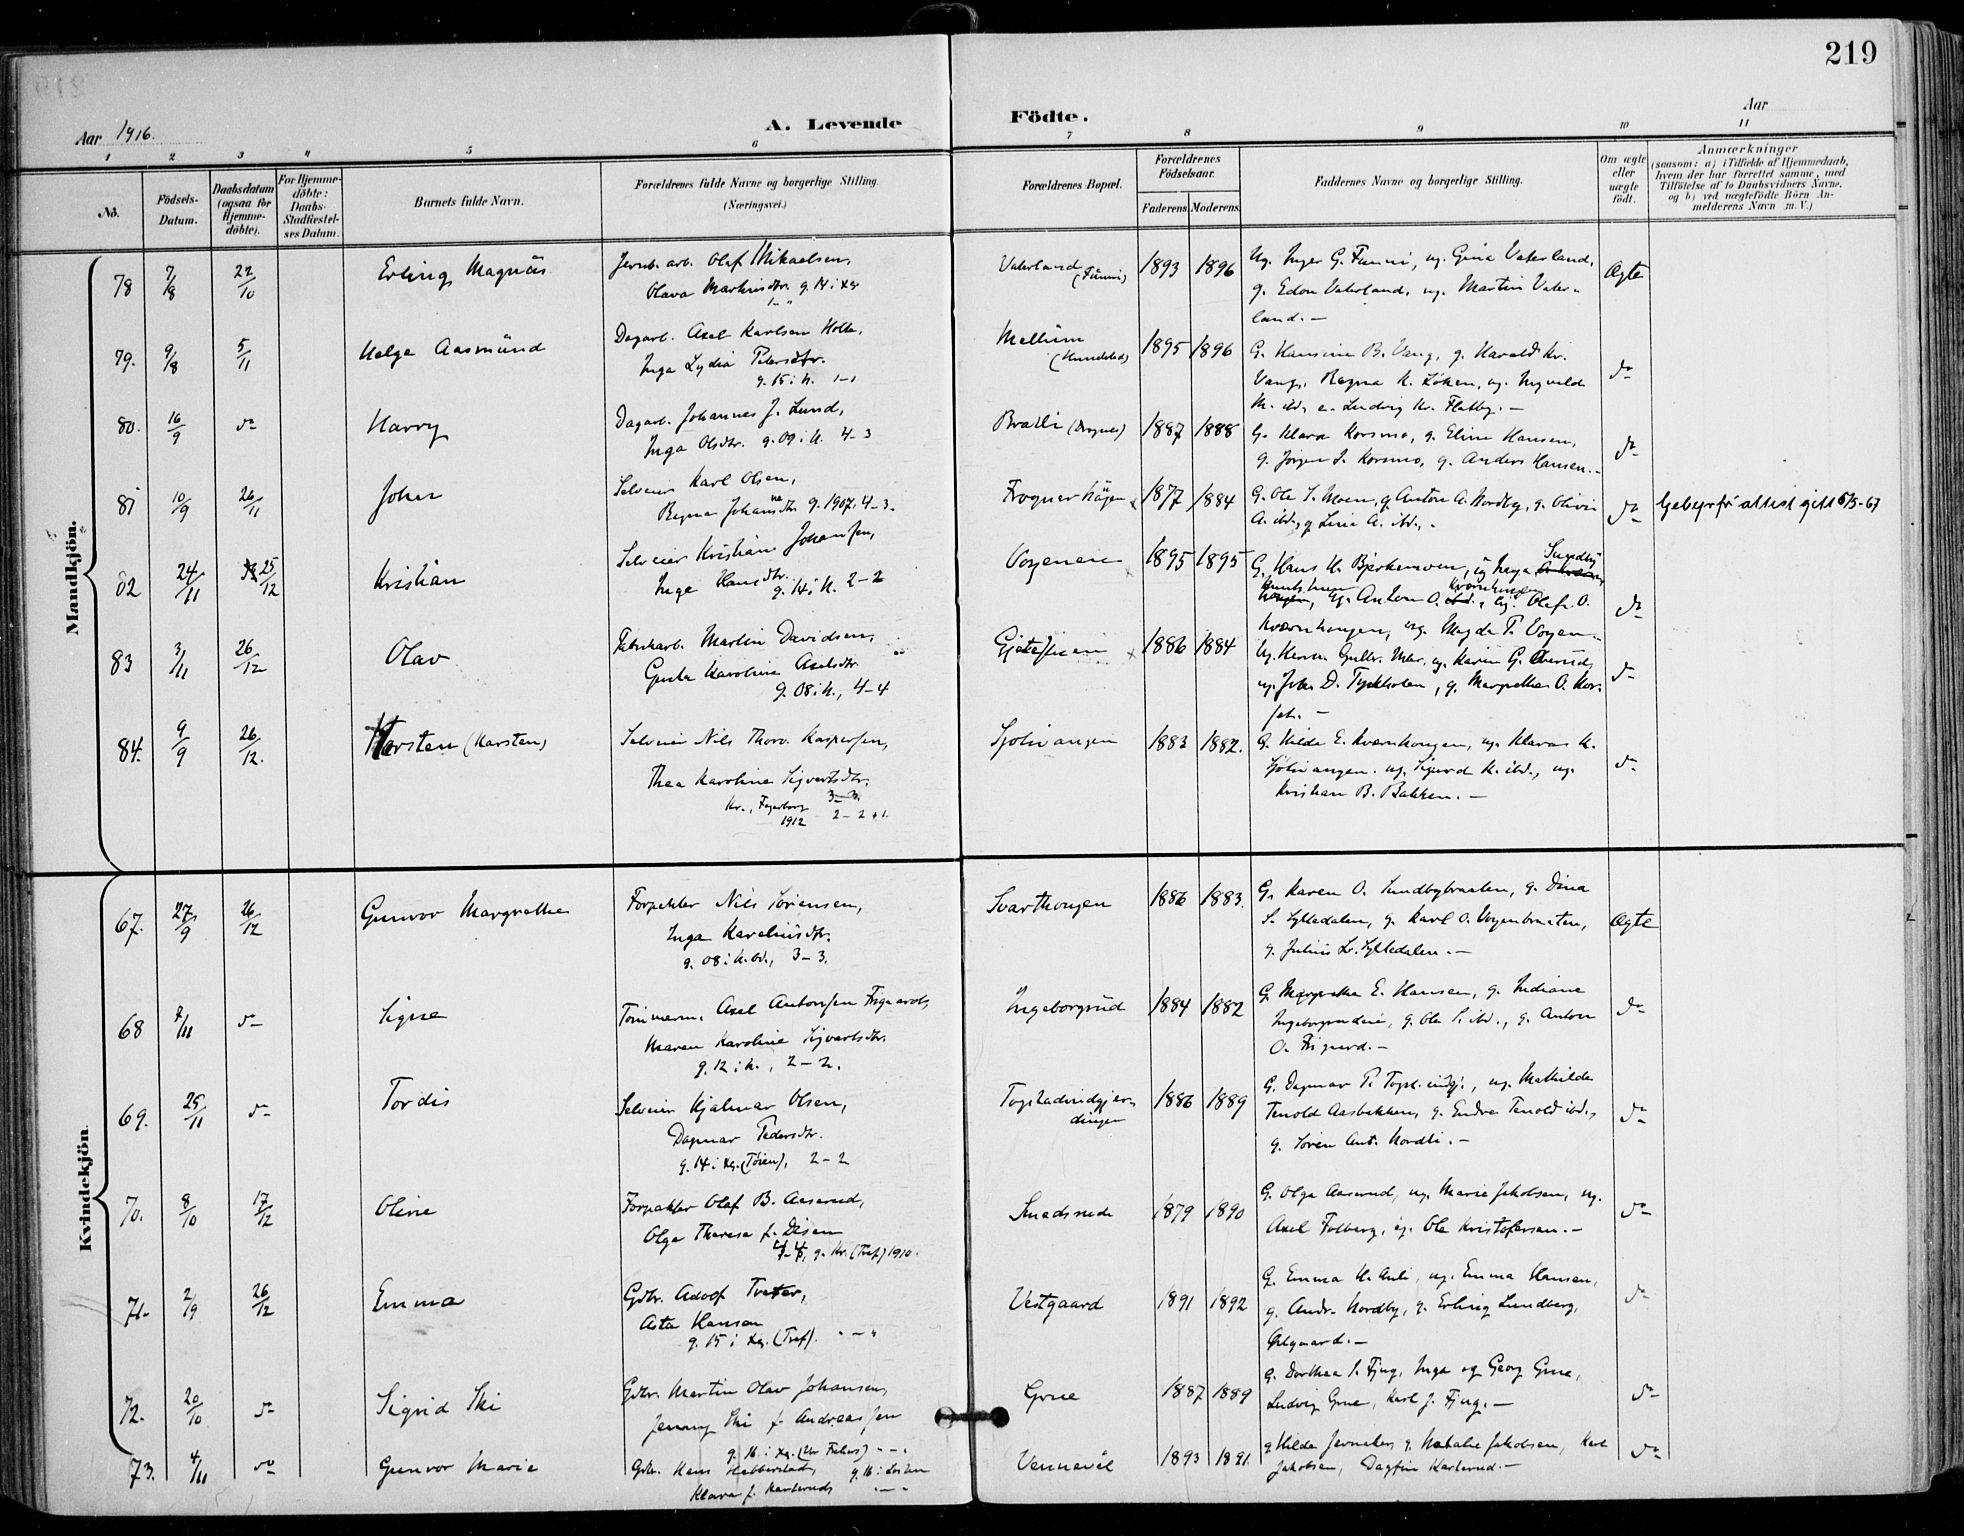 219
Aar 1916.
A. Levende Födte.
Aar
1 2 3 4 5 6 7 8 9 10 11
No.
Födsels-Datum.
Daabsdatum (ogsaa for Hjemme-döbte).
For Hjemme-döbte: Daabs-Stadfæstel-ses Datum.
Barnets fulde Navn.
Forældrenes fulde Navne og borgerlige Stilling.
(Næringsvei.)
Forældrenes Bopæl.
Forældrenes Födselsaar.
Faderens. Moderens.
Faddernes Navne og borgerlige Stilling.
Om ægte eller uægte födt.
Anmærkninger
(saasom: a) i Tilfælde af Hjemmedaab,
hvem der har forrettet samme, med
Tilföielse af to Daabsvidners Navne.
og b) ved uægtefödte Börn An-
melderens Navn m. V.)
Mandkjön.
78 7/8 22/10 Erling Magnus
Jernb. arb. Olaf Mikaelsen,
Olava Martinsdtr. g. 14 i Kg.
Vaterland (Funni) 1893 1896
Ug. Inger G. Funni, ug. Gina Vaterland,
g. Edon Vaterland, ug. Martin Vater-
land. —
Ægte
79. 9/8 5/11 Helge Aasmund
Dagarb. Axel Karlsen Holte,
Inga Lydia Petersdtr.
g. 15 i K. 1-1
Mellum (Hundsted) 1895 1896
G. Hansine B. Vang, g. Harald Kr.
Vang, Ragna K. Löken, ug. Ingvald
K. ibd., e. Ludvig Kr. Flatby. —
do
80. 16/9 do Harry
Dagarb. Johannes J. Lund,
Inga Olsdtr. g. 09 i K. 4-3
Braali 1887 1888
G. Klara Korsmo, g. Eline Hansen,
g. Jörgen J. Korsmo, g. Anders Hansen. -
do
81 10/9 26/11 Johan
Selveier Karl Olsen,
Ragna Johansdtr. g. 1907, 4-3.
Frognerhaugen 1877 1884
G. Ole S. Moen, g. Anton A. Nordby, g. Olivia
A. ibd., g. Lina A. ibd., -
do
attest gitt 5/5-67
82 24/11 25/12 Kristian
Selveier Kristian Johansen,
Inga Hansdtr.
g. 14 i K. 2-2
Vogenein 1895 1895
G. Hans K. Bjerkemoen, ug Inga Sundby
ug. Anton O. Kværnhaugen, ug. Olaf O.
Kværnhaugen, ug. Magda P. Vogen -
do
83 3/11 26/12 Olav
Fabrikarb. Martin Davidsen,
Gusta Karoline Axelsdtr.
g. 08 i K., 4-4
1886 1884
ug. Karen G. Overud,
ug. Johs. D. Tyskholen, g. Margrethe O. Kor-
set. —
do
84. 9/9 26/12. Karsten (Karsten)
Selveier Nils Thorv. Kaspersen,
Thea Karoline Sigvartsdtr.
Kr., Fagerborg 3-3.
1912 2-2+1.
Sjölivangen 1883 1882.
G. Hilda E. Kværnhaugen, ug. Klaras K.
Sjölivangen. ug. Sigurd K. ibd., ug.
Kristian B. Bakken. —
do
Kvindekjön.
67. 27/9 26/12 Gunvor Margrethe
Forpakter Nils Sörensen,
Inga Karelinisdtr.
g. 08 i K. ibd., 3-3.
Svarthougen 1886 1883.
G. Karen O. Sundbybraaten, g. Dina
S. Sylledalen, g. Karl O. Vogenbraaten,
g. Julius Lv. Sylledalen. —
Ægte
68 7/11 do Signe
Tömmerm. Axel Antonsen Frigaard,
Maren Karoline Sigvartsdtr.
g. 12 i K., 2-2.
Ingeborgrud 1884 1882
G. Margrethe E. Hansen, g. Indiane
Ingeborgruden, g. Ole S. ibd., g. Anton
O. Frigaard. —
do
69. 25/11 do Tordis
Selveier Hjalmar Olsen,
Dagmar Pedersdtr.
g. 14 i Kg. (Töien), 2-2
Togstadindgjer-
dingen
1886 1889
G. Dagmar P. Togst.indgj., ug. Mathilde
Tenold Aasbekken, g. Endre Tenold ibd.,
g. Sören Ant. Nordli. —
do
70. 8/10 17/12 Oline
Forpakter Olaf B. Aaserud,
Olga Theresa f. Disen
4-4, g. Kr. (Tref) 1910.
Snadsrude 1879 1890
G. Olga Aaserud, ug. Marie Jakobsen, ug.
Axel Folberg, ug. Ole Kristofersen. —
do
71. 2/19 26/12 Emma
Gdbr. Adolf Tveter,
Asta Hansen
g. 15 i Kg. (Tref). " — "
Vestgaard 1891 1892
G. Emma K. Auli, ug. Emma Hansen,
g. Andr. Nordby, g. Erling Lundberg,
do
72. 20/10 do Sigrid Ski
Gdbr. Martin Olav Johansen,
Jenny Ski f. Andreassen
Grue 1887 1889
G. Dorthea S. Fjug, Inga og Georg Grue,
Ludvig Grue, Karl J. Fjug. —
do
73. 4/11 do Gunvor Marie
Gdbr. Hans Hebberstad, g. 16 i
Klara f. Karterud " — "
Vennevöl 1893 1891.
g Hilda Jernaker, g. Natalie Jakobsen, Karl
Jakobsen, Dagfin Karterud. —
do